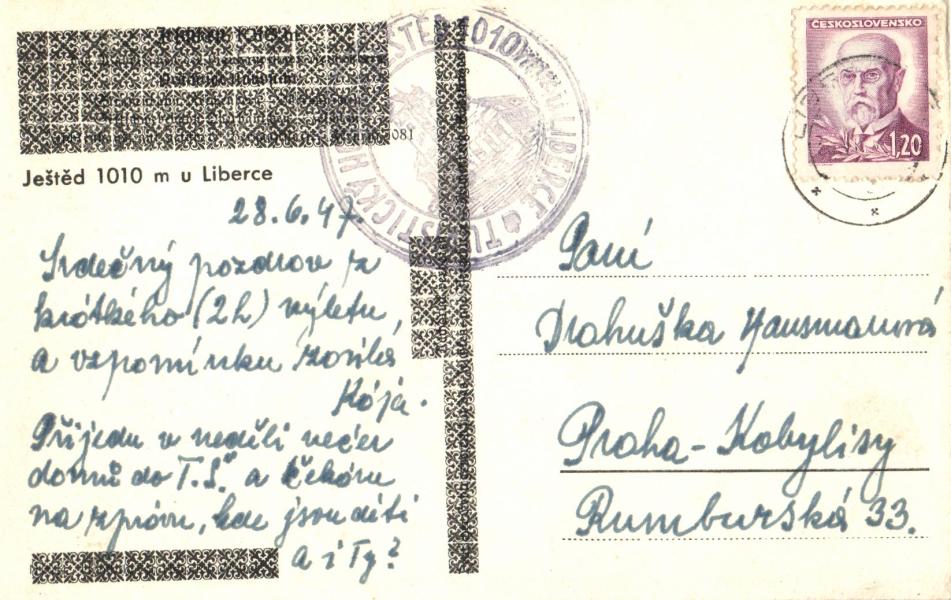 081
Ještěd 1010 m u Liberce
28.6.47.
Srdečný pozdrav z
krátkého (2h) výletu,
a vzpomínku zasílá
Kája.
Přijedu v neděli večer
domů do T.S. a čekám
na zprávu, kde jsou děti
a i Ty?
JEŠTĚD 1010 m u LIBERCE
TURISTICKÝ
ČESKOSLOVENSKO
1,20
Paní
Drahuška Hausmanová
Praha-Kobylisy
Rumburská 33.